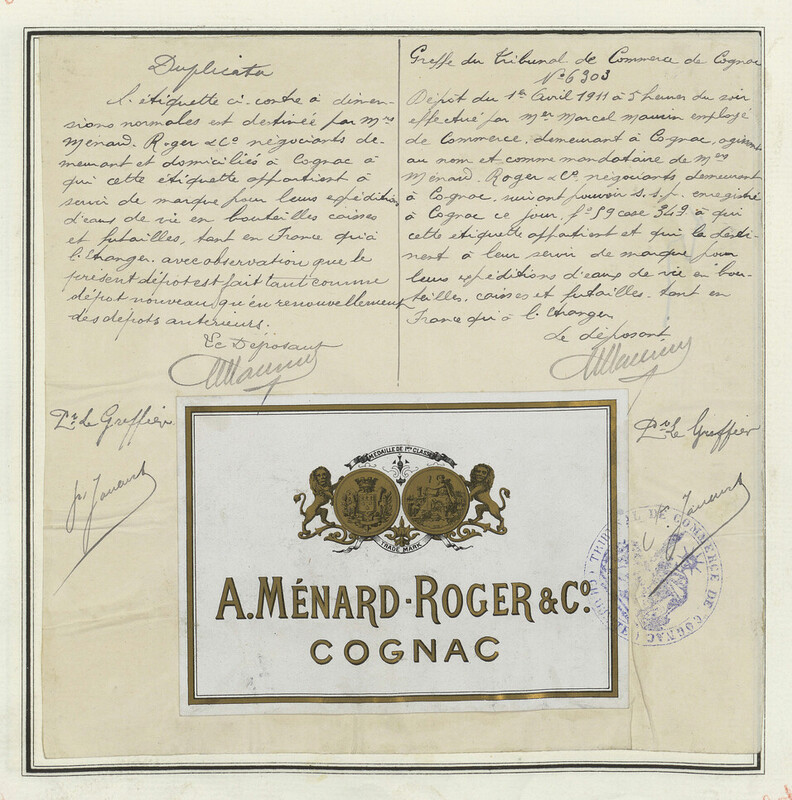 Duplicata
L'étiquette ci-contre à dimen-
sions normales est destinée par Mrs
Ménard-Roger & Co négociants de-
meurant et domiciliés à Cognac à
qui cette étiquette appartient à
servir de marque pour leurs expéditions
d'eaux de vie en bouteilles caisses
et futailles, tant en France qu'à
l'Etranger. avec observation que le
présent dépôt est fait tant comme
dépôt nouveau, qu'en renouvellement
des dépots antérieurs.
Le Déposant
Pr Le Greffier
Greffe du Tribunal de Commerce de Cognac
No 6303
Dépôt du 1er Avril 1911 à 5 heures du soir
effectué par Mer Marcel Maurin employé
de Commerce, demeurant à Cognac, agissant
au nom et comme mandataire de Mrs
Ménard-Roger & Co négociants demeurant
à Cognac, suivant pouvoir s.s.p. enregistré
à Cognac ce jour, fo 59 case 349 à qui
cette étiquette appartient et qui la desti-
nent à leur servir de marque pour
leurs expéditions d'eaux de vie en bou-
teilles, caisses et futailles, tant en
France qu'à l'Etranger.
Le déposant
Pr Le Greffier
MÉDAILLE DE 1ère CLASSE
TRADE MARK
A. MÉNARD-ROGER & Co.
COGNAC
TRIBUNAL DE COMMERCE DE COGNAC